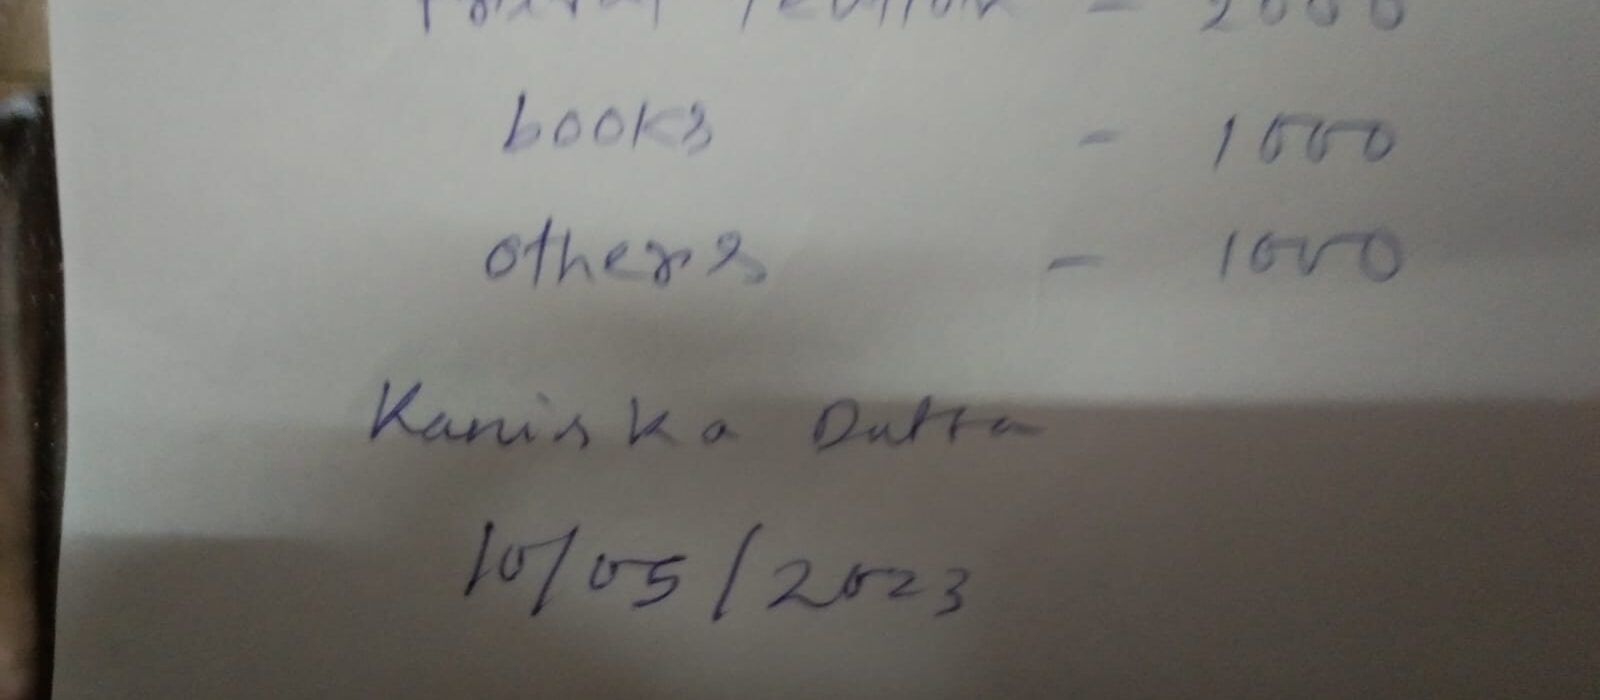 - 2000
books - 1000
others - 1000
Kaniska Dutta
10/05/2023